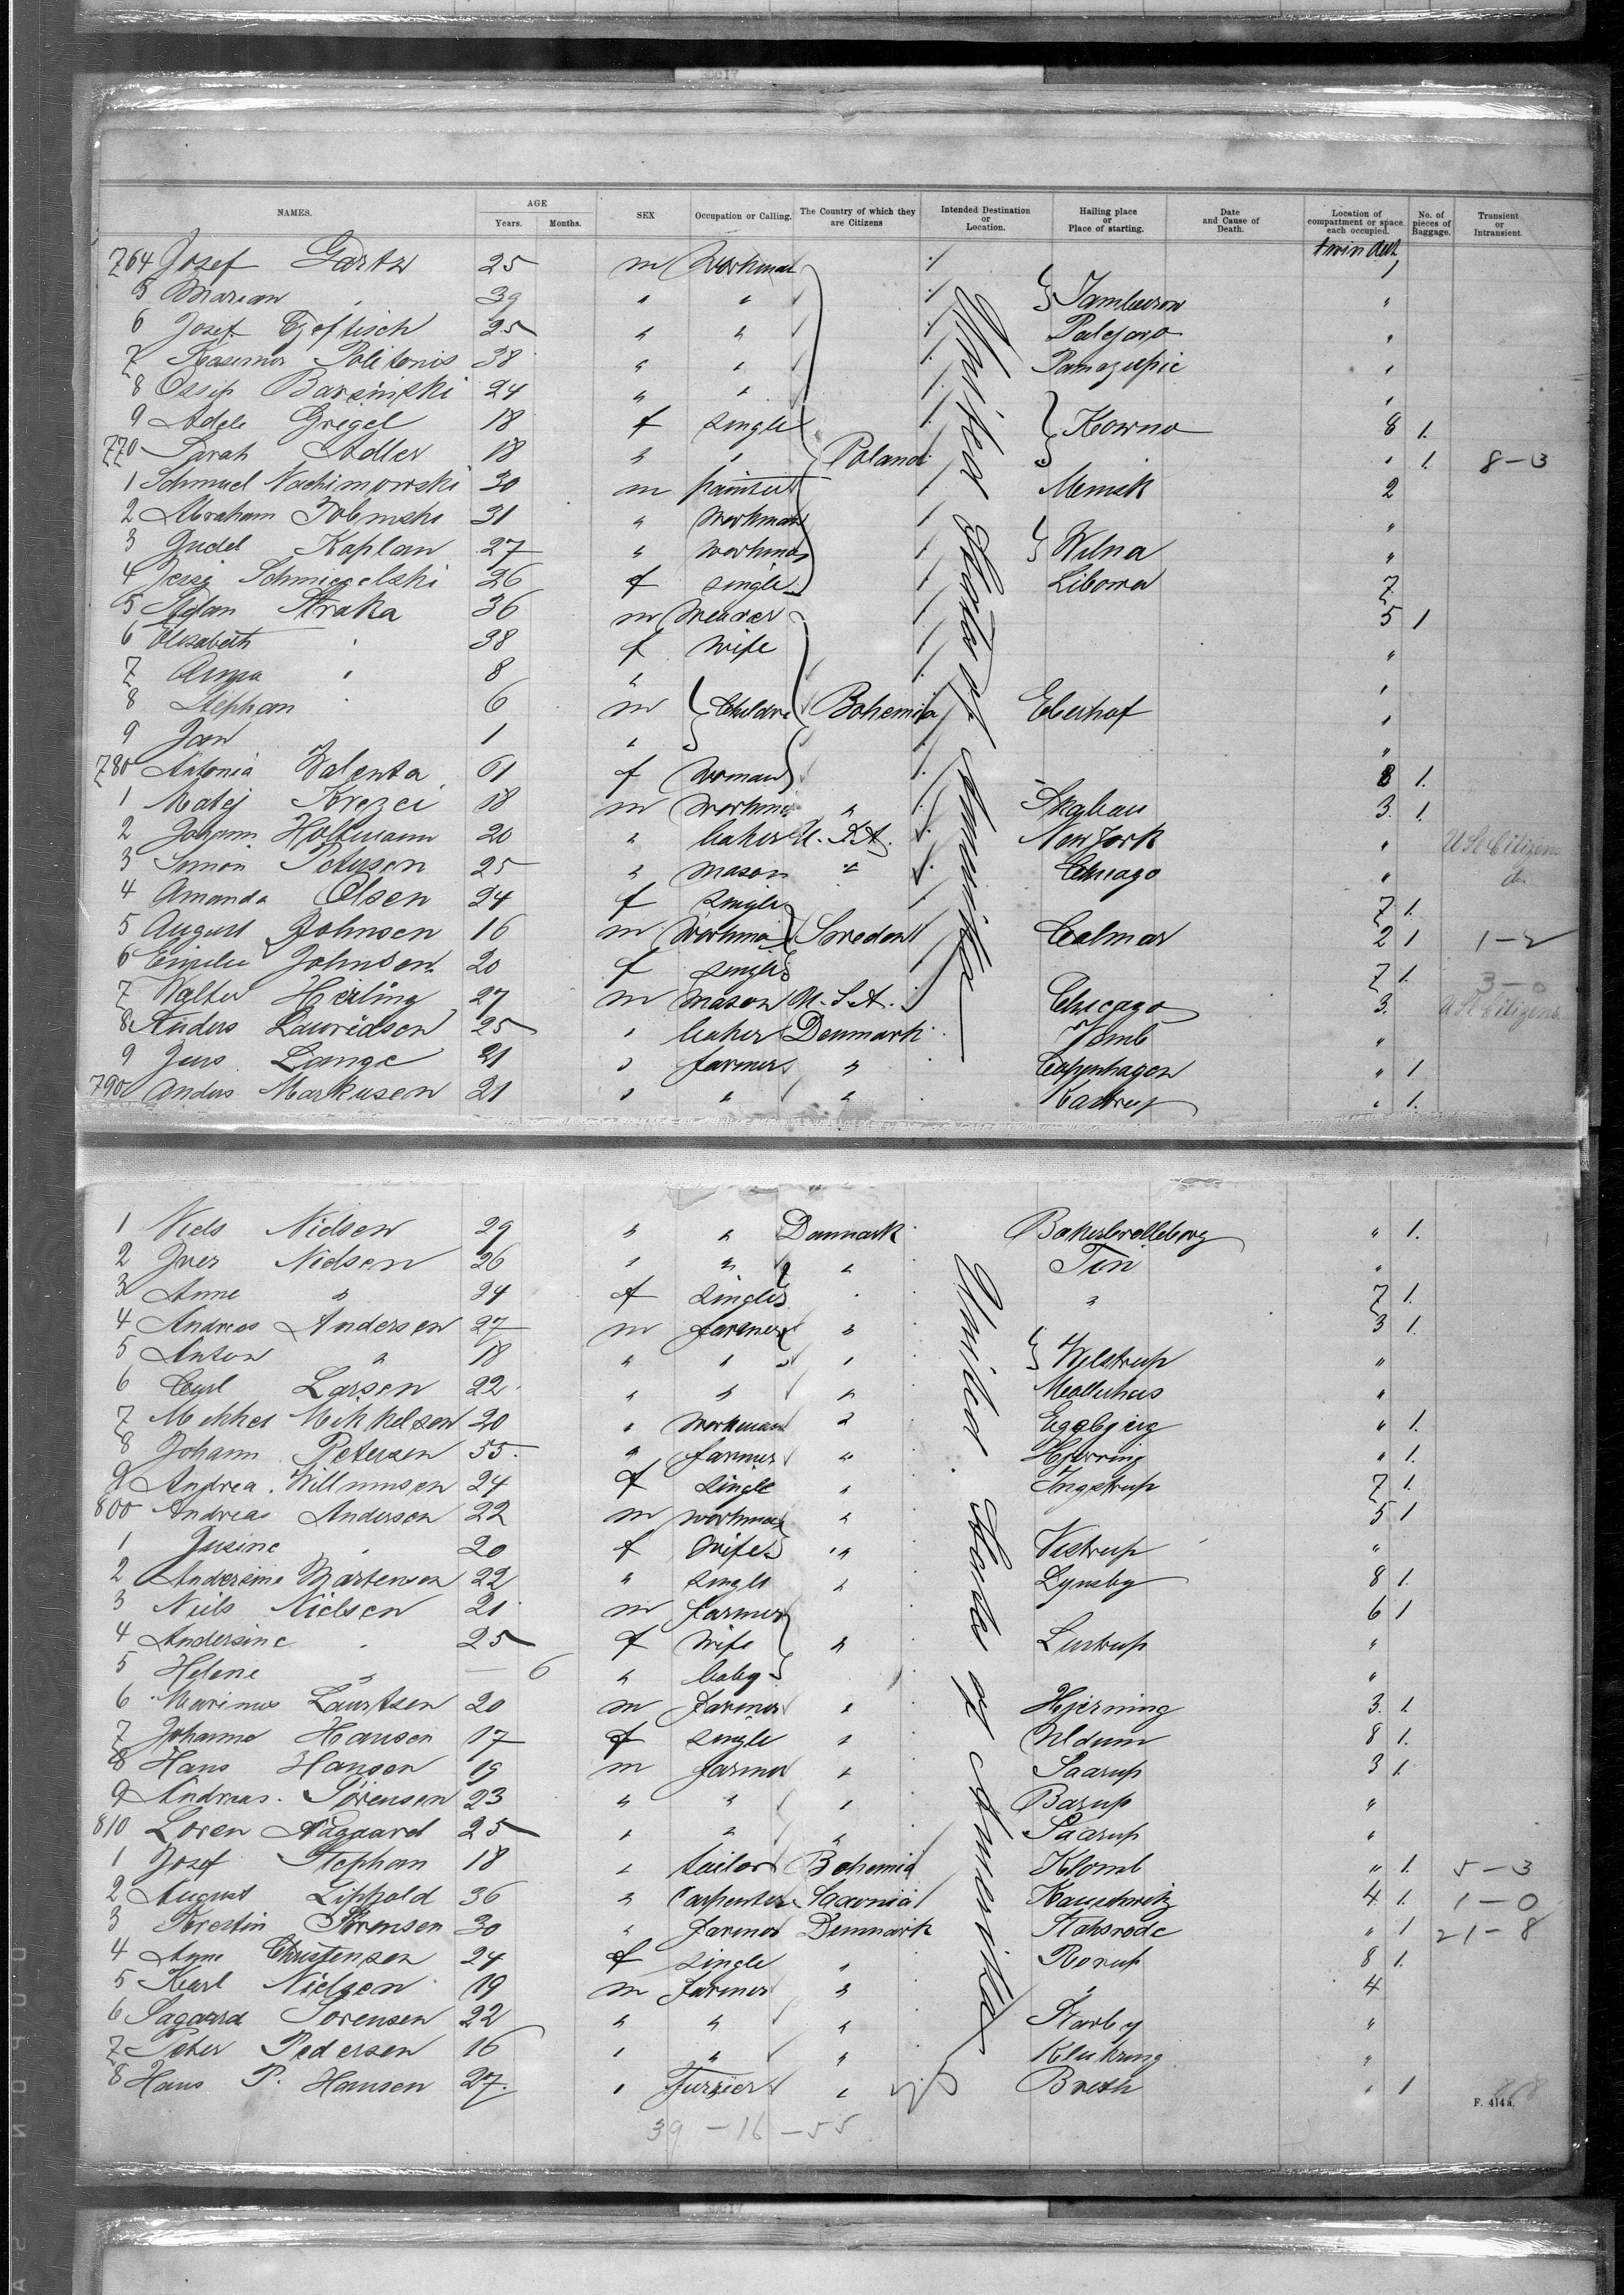 NAMES. AGE Years. Months. SEX Occupation or Calling. The Country of which they are Citizens Intended Destination or Location. Hailing place or Place of starting. Date and Cause of Death. Location of compartment or space each occupied. No. of pieces of Baggage. Transient or Intransient.
764 Josef Gartz 25 m Workman
5 Marian " 39 " " "
6 Josef 25 " " "
7 Politonis 38 " " "
8 Ossip Barsinski 24 " " "
9 Adele Grigel 18 f single Kowno 8 1.
770 Sarah Adler 18 " " Poland " 1. 8-3
1 Schmuel Nachimowski 30 m painter Minsk 2
2 Abraham 31 " Workman "
3 Judel Kaplan 27 " workman Wilna "
4 Schmiegelski 26 f single Libowa 7
5 Stefan Straka 36 m Weaver 5 1
6 Elisabeth " 38 f wife "
7 Anna " 8 " "
8 Stephan " 6 m Childre Bohemia Eberhof "
9 Jan 1 " "
780 Antonia Valenta 61 f Woman 8 1.
1 Matej Krezci 18 m workma " 3. 1.
2 Johann Holtmann 20 " baker U.S.A. New York " U St Citizens
3 Simon Peterson 25 " mason " Chicago " do
4 Amanda Olsen 24 f single 7 1.
5 August Johnsen 16 m Workma Sweden Calmar 2 1 1-2
6 Emilie Johnsen 20 f single 7 1. 3-0
7 Walter Herling 27 m mason U.S.A. Chicago 3. U St Citizens
8 Anders Lauridsen 25 " baker Denmark Vemb "
9 Jens Lange 21 " farmer " Copenhagen " 1
790 Anders Markusen 21 " " " Kastrup " 1.
United States of America
1 Niels Nielsen 29 " " Danmark " 1.
2 Iver Nielsen 26 " " " "
3 Anne " 24 f single " " 7 1.
4 Andreas Andersen 27 m farmer " 3 1.
5 Anton " 18 " " " Vilstrup "
6 Carl Larsen 22 " " " "
7 Mikkel Mikkelsen 20 " Workman " " 1.
8 Johann Petersen 55 " farmer " Hjørring " 1.
9 Andrea Willumsen 24 f single " Ingstrup 7 1.
800 Andreas Andersen 22 m workman " 5 1
1 Jusine " 20 f wife " Vistrup "
2 Andersine Martensen 22 " single " Lynsby 8 1.
3 Niels Nielsen 21 m farmer 6 1
4 Andersine " 25 f wife " Lustrup "
5 Helene " — 6 " baby "
6 Marinus Lauritsen 20 m farmer " Hjerning 3. 1.
7 Johanne Hansen 17 f single " Uldum 8 1.
8 Hans Hansen 19 m farmer " Saarup 3 1.
9 Andreas Sörensen 23 " " " Barup "
810 Soren Aagaard 25 " " " Saarup "
1 Josef Stephan 18 " tailor Bohemia Klomb " 1. 5-3
2 August Lippold 36 " Carpenter Saxonia 4. 1. 1-0
3 Kerstin Sörensen 30 " farmer Denmark Stahsrode " 1 21-8
4 Anne Christensen 24 f single " Rorup 8 1.
5 Karl Nielsen 19 m farmer " " 4
6 Sagaard Sorensen 22 " " " Starby "
7 Peter Pedersen 16 " " " "
8 Hans P. Hansen 27. " " Breth " 1
United States of America
39-16-55
F. 414a.